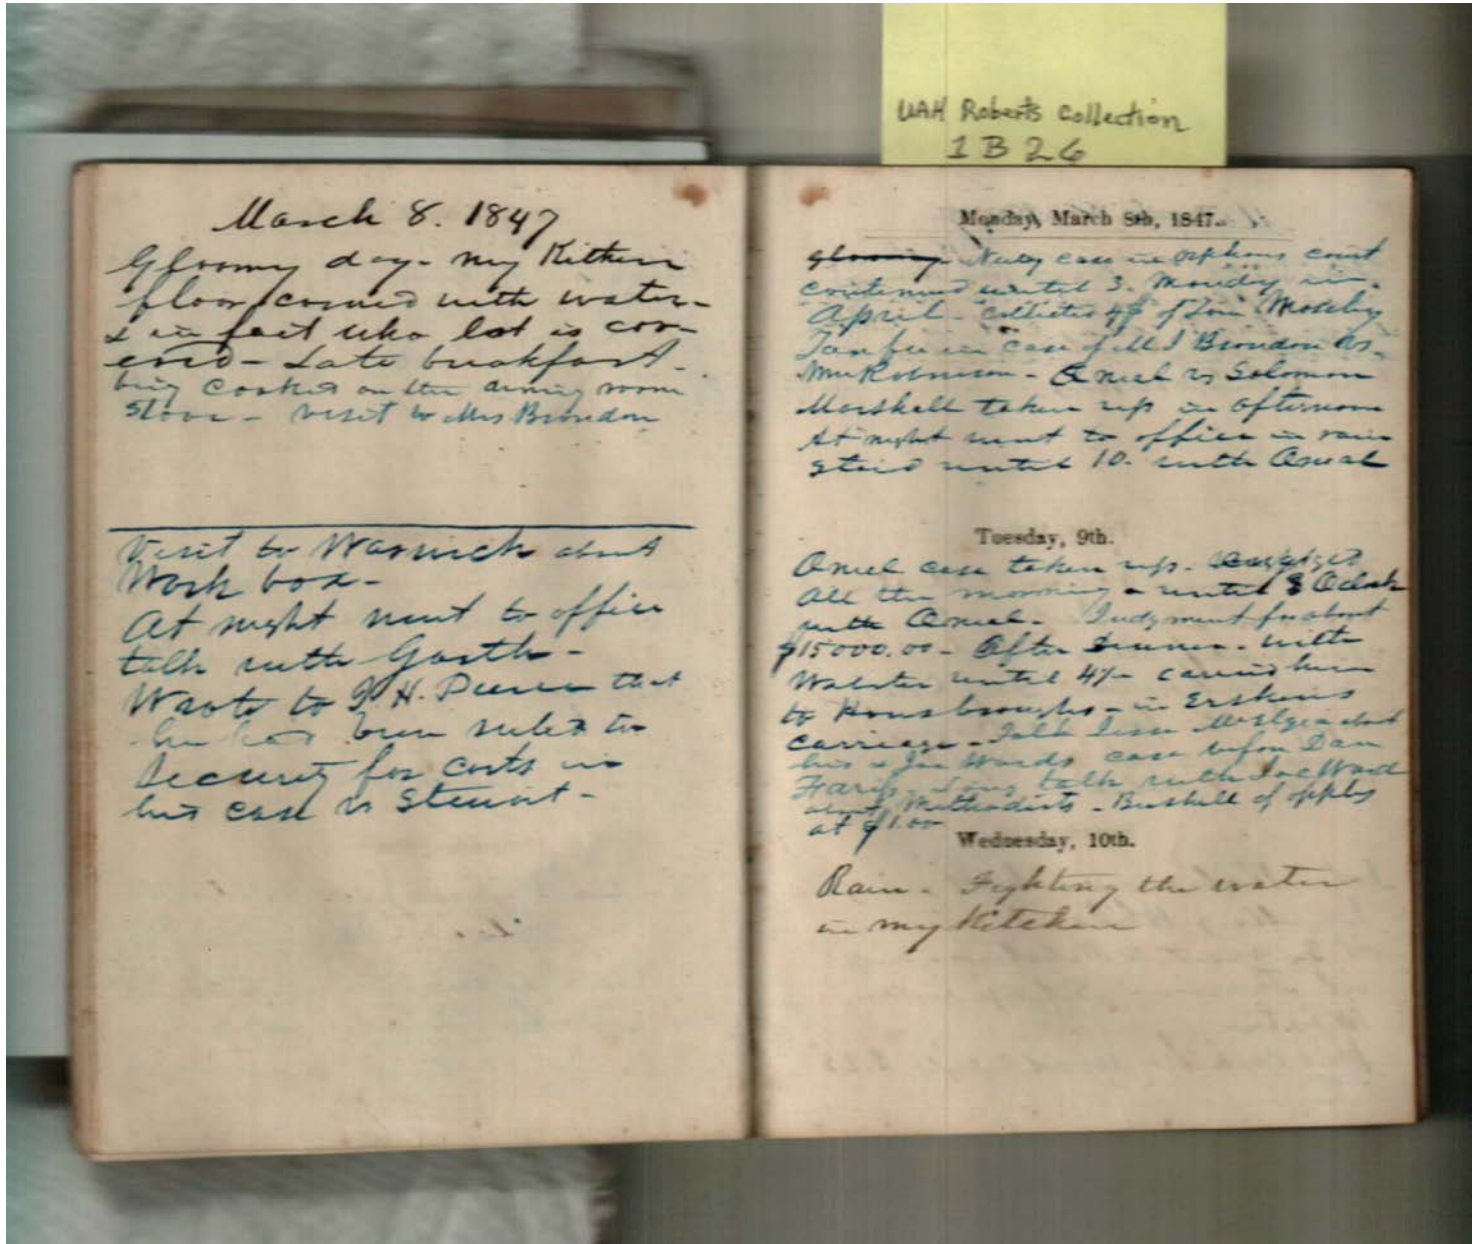 UAH Roberts Collection
1 B 26
March 8. 1847
Gloomy day - my Kitchen
floor covered with water -
& in fact who lot is cov-
ered - Late breakfast -
being cooked on the dining room
Stove - visit to Mrs Brandon
Visit to Warwick about
Work box -
At night went to office
talk with Garth -
Wrote to J. H. Pierce that
he had been ruled to
Security for costs in
his case vs Stewart -
Monday, March 8th, 1847.
case in orphans court
continued until 3. Monday in
April - Collected of Tom Moseley
Tax fee in case of Brandon vs.
Robinson - Oneal vs Solomon
Marshall taken up in afternoon
At night went to office in rain
Staid until 10. with Oneal
Tuesday, 9th.
Oneal case taken up - engaged
all the morning & until 3 Oclock
with Oneal - Judgment for about
$15000.00 - After Dinner - with
until 4½ carried him
to - in Erskins
carriage - Talk about
his & Joe Wards case before Dan
long talk with Joe Ward
about Methodists - Bushell of apples
at $1.00
Wednesday, 10th.
Rain - Fighting the water
in my Kitchen